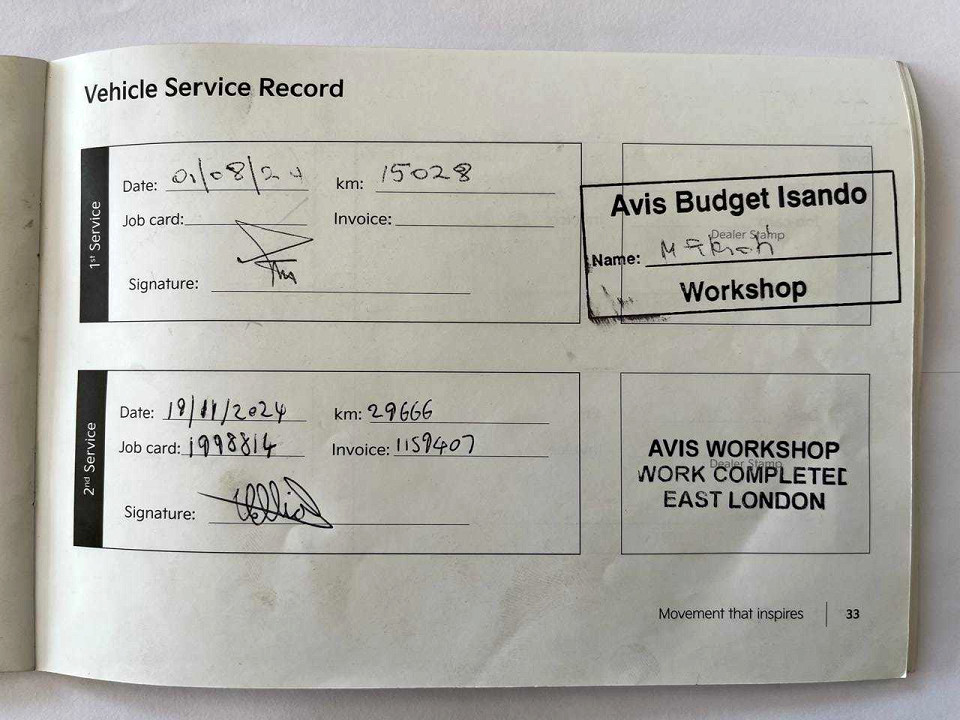 Vehicle Service Record
1st Service
Date: 01/08/24 km: 15028
Job card: Invoice:
Signature:
Avis Budget Isando
Dealer Stamp
Name:
Workshop
2nd Service
Date: 19/11/2024 km: 29666
Job card: 1998814 Invoice: 1159407
Signature:
AVIS WORKSHOP
Dealer Stamp
WORK COMPLETED
EAST LONDON
Movement that inspires 33